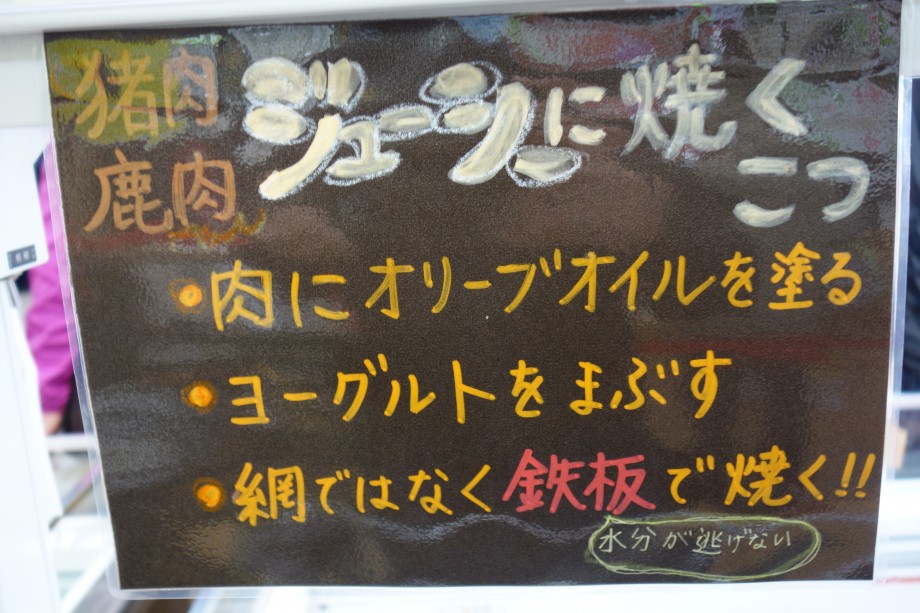 猪肉 鹿肉 ジューシーに焼く
こつ
・肉にオリーブオイルを塗る
・ヨーグルトをまぶす
・網ではなく鉄板で焼く!!
水分が逃げない